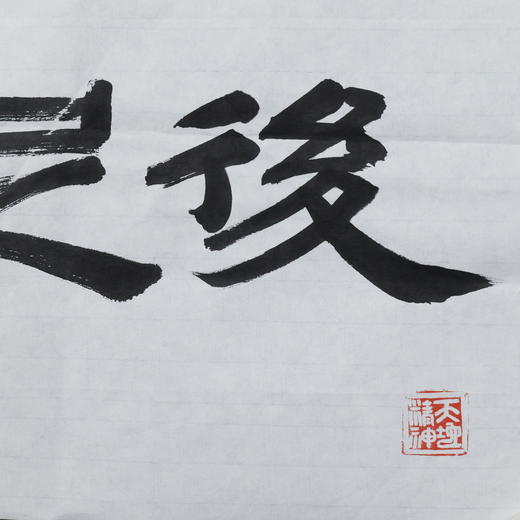 後
天地精神